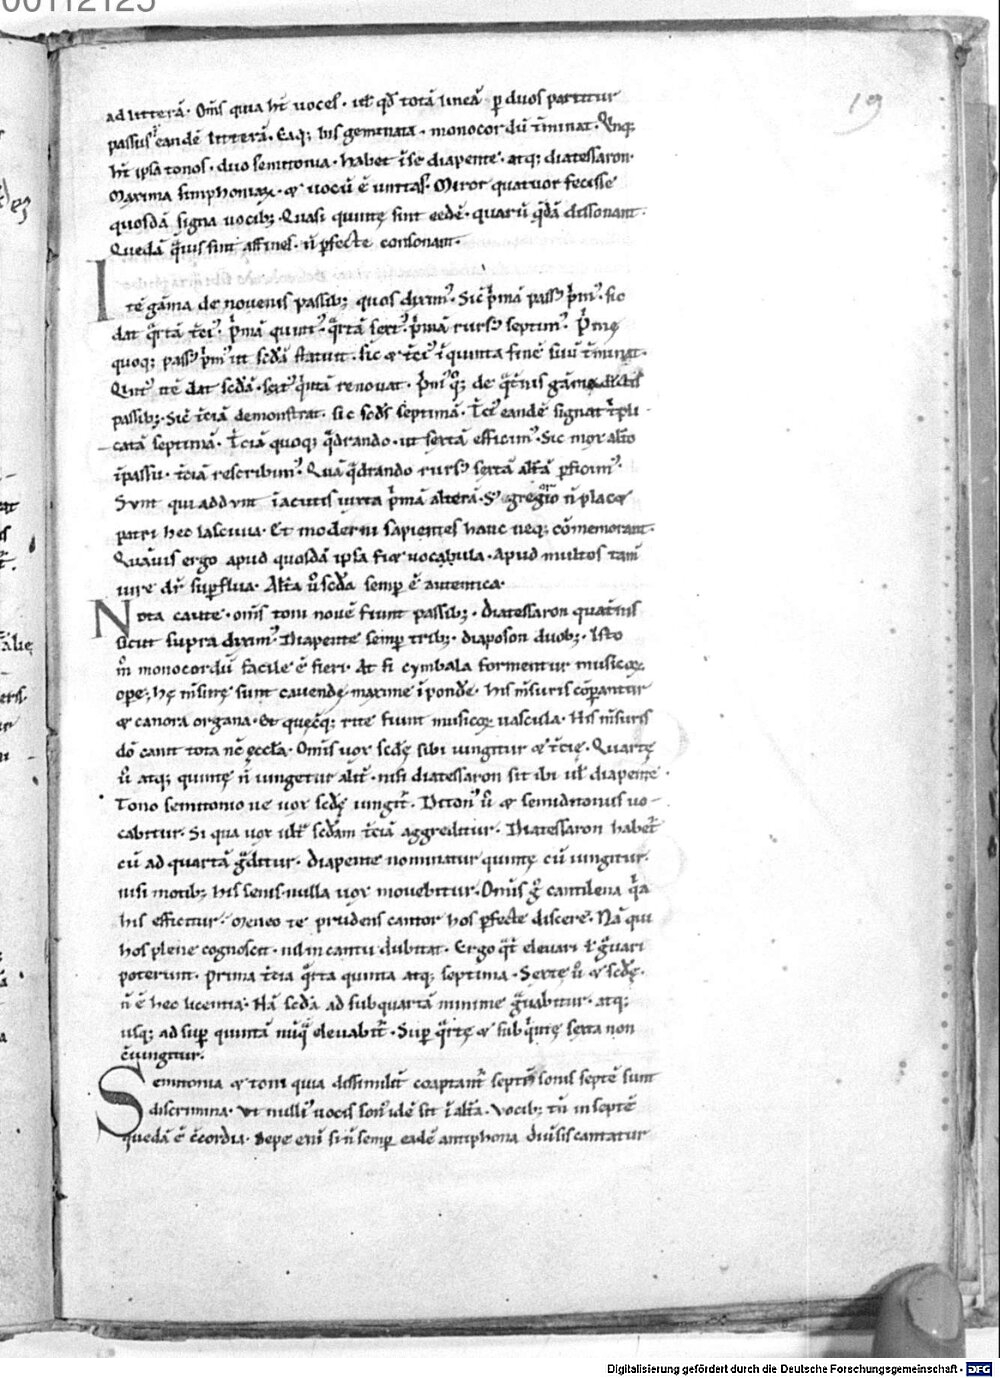 00112125
19
ad litterā. Om̄s quia hn̄t voces. ut̄ qd̄ totā lineā p duos partitur
passus eandē litterā. Eaq; bis geminata. monocordū t̄minat. Qn̄q;
hn̄t ipsa tonos. duo semitonia. habet ī se diapente. atq; diatessaron.
Maxima simphoniaꝝ. & vocū ē unitas. Miror quatuor fecisse
quosdā signa vocib; Quasi quintę sint eędē. quarū q̄dā dissonant.
Quedā quis sint affines. n̄ pfecte consonant.
Itē gāma de novenis passib; quos diximꝰ. Sic p̄mā passꝰ p̄mꝰ. sic
dat q̄rtā t̄ciꝰ. p̄mā quintꝰ. q̄rtā sextꝰ. p̄mā rursꝰ septimꝰ. P̄mę
quoq; passꝰ p̄mꝰ in scd̄ā statuit. sic & t̄ciꝰ ī quinta finē suū t̄minat.
Quintꝰ itē dat scd̄ā. sextꝰ q̄ntā renovat. p̄mꝰ q̄q; de q̄t̄nis gāma dictis
passib;. Sic t̄ciā demonstrat. sic scd̄s septimā. T̄ciꝰ eandē signat t̄pli-
catā septimā. T̄ciā quoq; q̄drando. ut sextā efficimꝰ. Sic mox alio
ī passu. t̄ciā rescribimꝰ. Quā q̄drando rursꝰ sextā alt̄ā pficimꝰ.
Sunt qui addunt ī acutis iuxta p̄mā alterā. S; gregorio n̄ placet
patri hec lascivia. Et moderni sapientes hanc neq; cōmemorant.
Quāvis ergo apud quosdā ipsa fiat vocabula. Apud multos tam̄
iure dr̄ supflua. Alt̄a ū scd̄a semp ē autentica.
Nota caute. om̄s toni novē fiunt passib;. Diatessaron quat̄nis
sicut supra diximꝰ. Diapente semp trib;. diapason duob;. Isto
m̄ monocordū facile ē fieri. At si cymbala formentur musicoꝝ
ope; hę m̄surę sunt cavendę maxime ī pondē. His m̄suris cōparantur
& canora organa. Et quęcq; rite fiunt musicoꝝ vascula. His m̄suris
dō canit tota nc̄ eccl̄a. Om̄is vox scd̄ę sibi iungitur & t̄cię. Quartę
ū atq; quintę n̄ iungetur alit̄. nisi diatessaron sit ibi ut̄ diapente.
Tono semitonio ve vox scd̄ę iungit̄. Ditonꝰ ū & semiditonus vo-
cabitur. Si qua vox ult̄ scd̄am t̄ciā aggreditur. Diatessaron habet̄
cū ad quartā g̃ditur. diapente nominatur quintę cū iungitur.
nisi motib; his senis. nulla vox movebitur. Om̄is g̊ cantilena q̄a
his efficitur. Moneo te prudens cantor hos pfecte discere. Nā qui
hos plene cognoscit. nil in cantu dubitat. Ergo q̄t̄ elevari t̄ g̃vari
poterunt. prima t̄cia q̄rta quinta atq; septima. Sextę ū & scd̄ę.
n̄ ē hec licentia. Nā scd̄a ad sub quartā minime g̃vabitur. atq;
usq; ad sup quintā nūq̄ elevabit̄. Sup q̄rtę & sub q̄ntę sexta non
c̄iungitur.
Semitonia & toni quia dissimilit̄ coaptant̄ septē sonis septē sunt
discrimina. Ut nulliꝰ vocis sonꝰ idē sit ī alt̄a. Vocib; tn̄ in septē
quedā ē c̄cordia. Sepe eni si n̄ semp eadē antiphona divisis cantatur
Digitalisierung gefördert durch die Deutsche Forschungsgemeinschaft - DFG